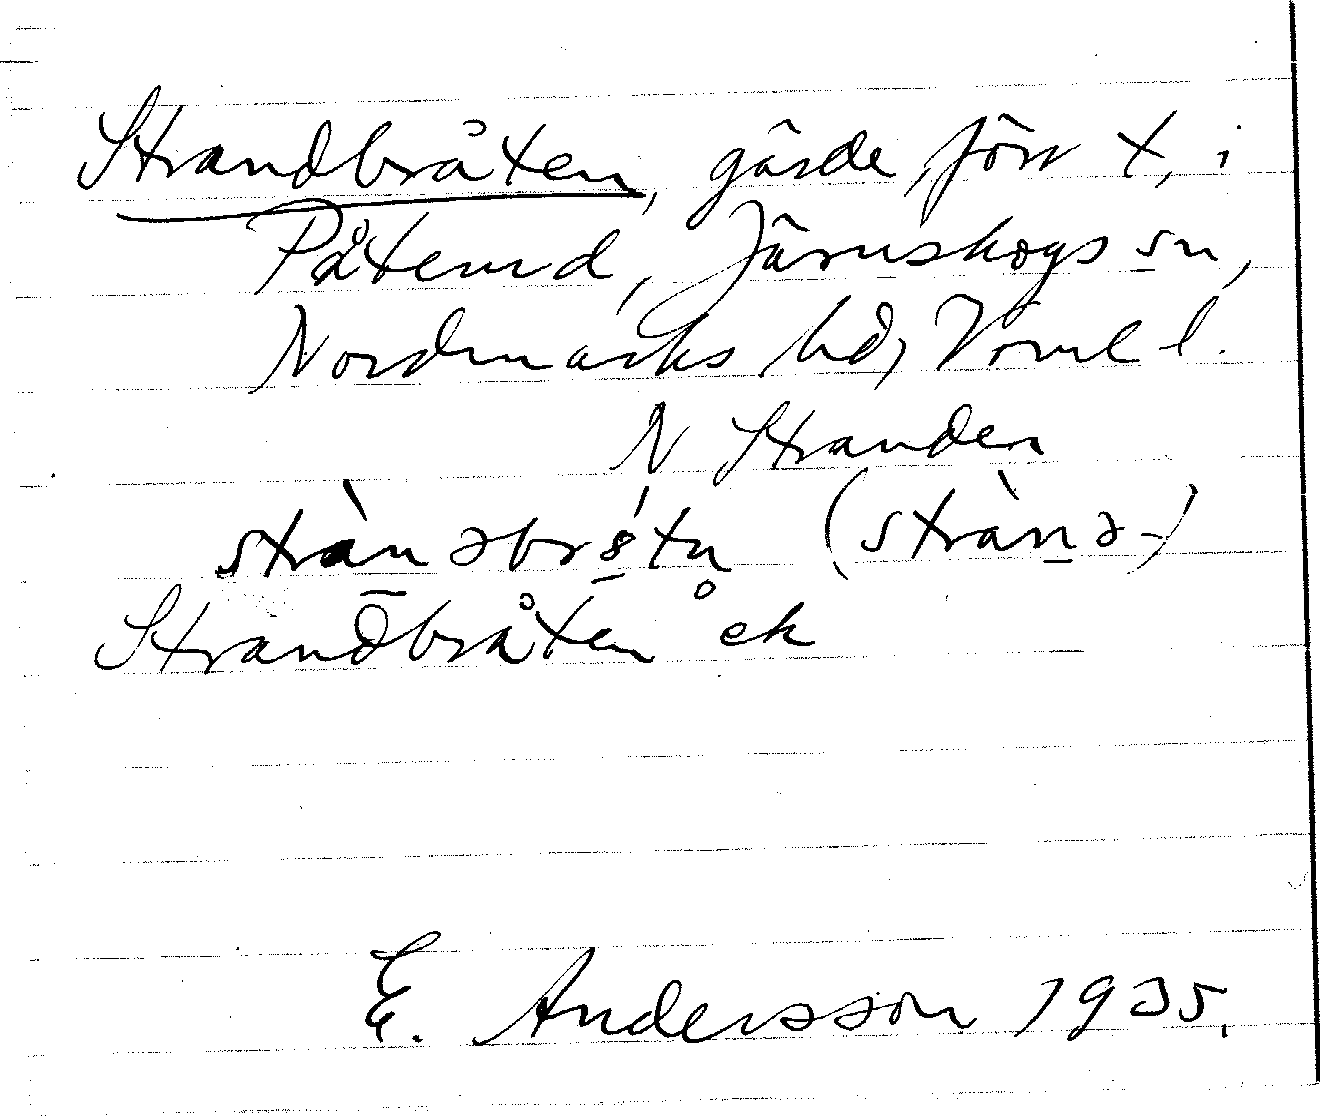 Strandbråten, gärde, förr t, i
Påterud, Järnskogs sn,
Nordmarks hd, Vrml l.
N Stranden
stràn əbrstn (stràn ə-)
Strandbråten åek
E. Andersson 1935.